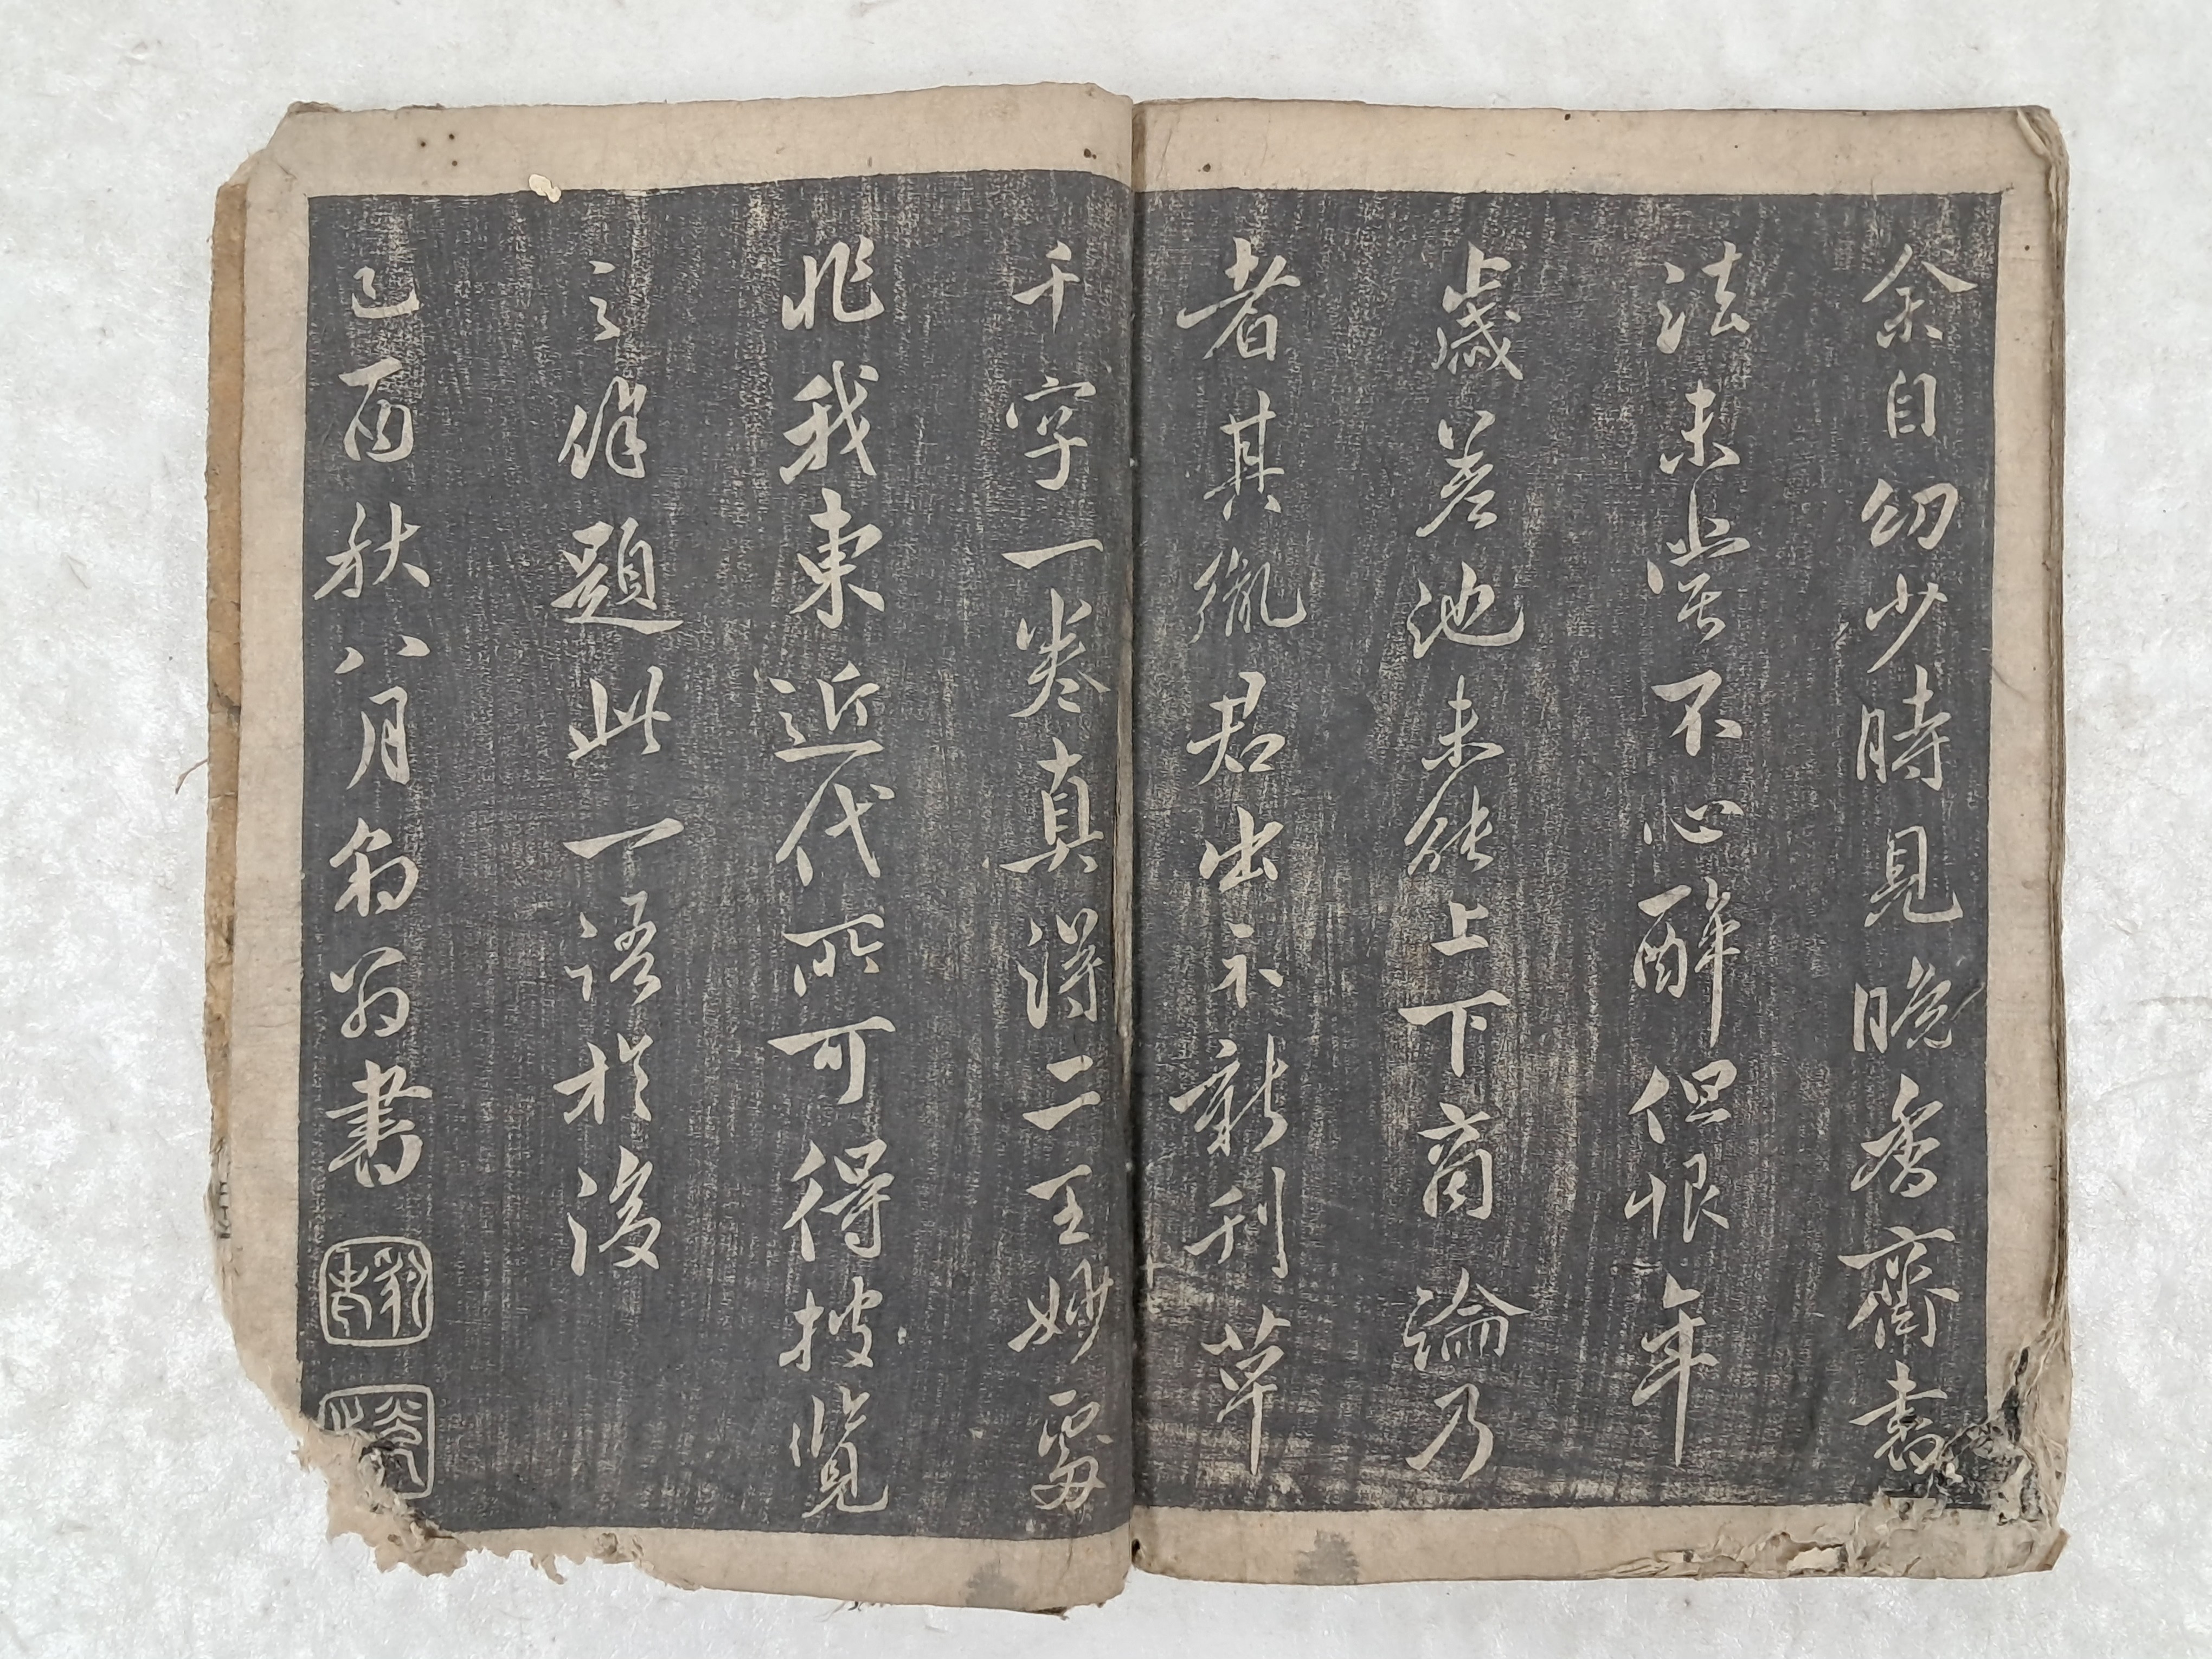 余自幼少時見晩香齋書
法未嘗不心醉但恨年
歲差池未能上下商論乃
者其胤君出示新刊草
千字一卷真得二王妙處
非我東近代所可得披覽
之餘題此一語於後
己酉秋八月豹翁書